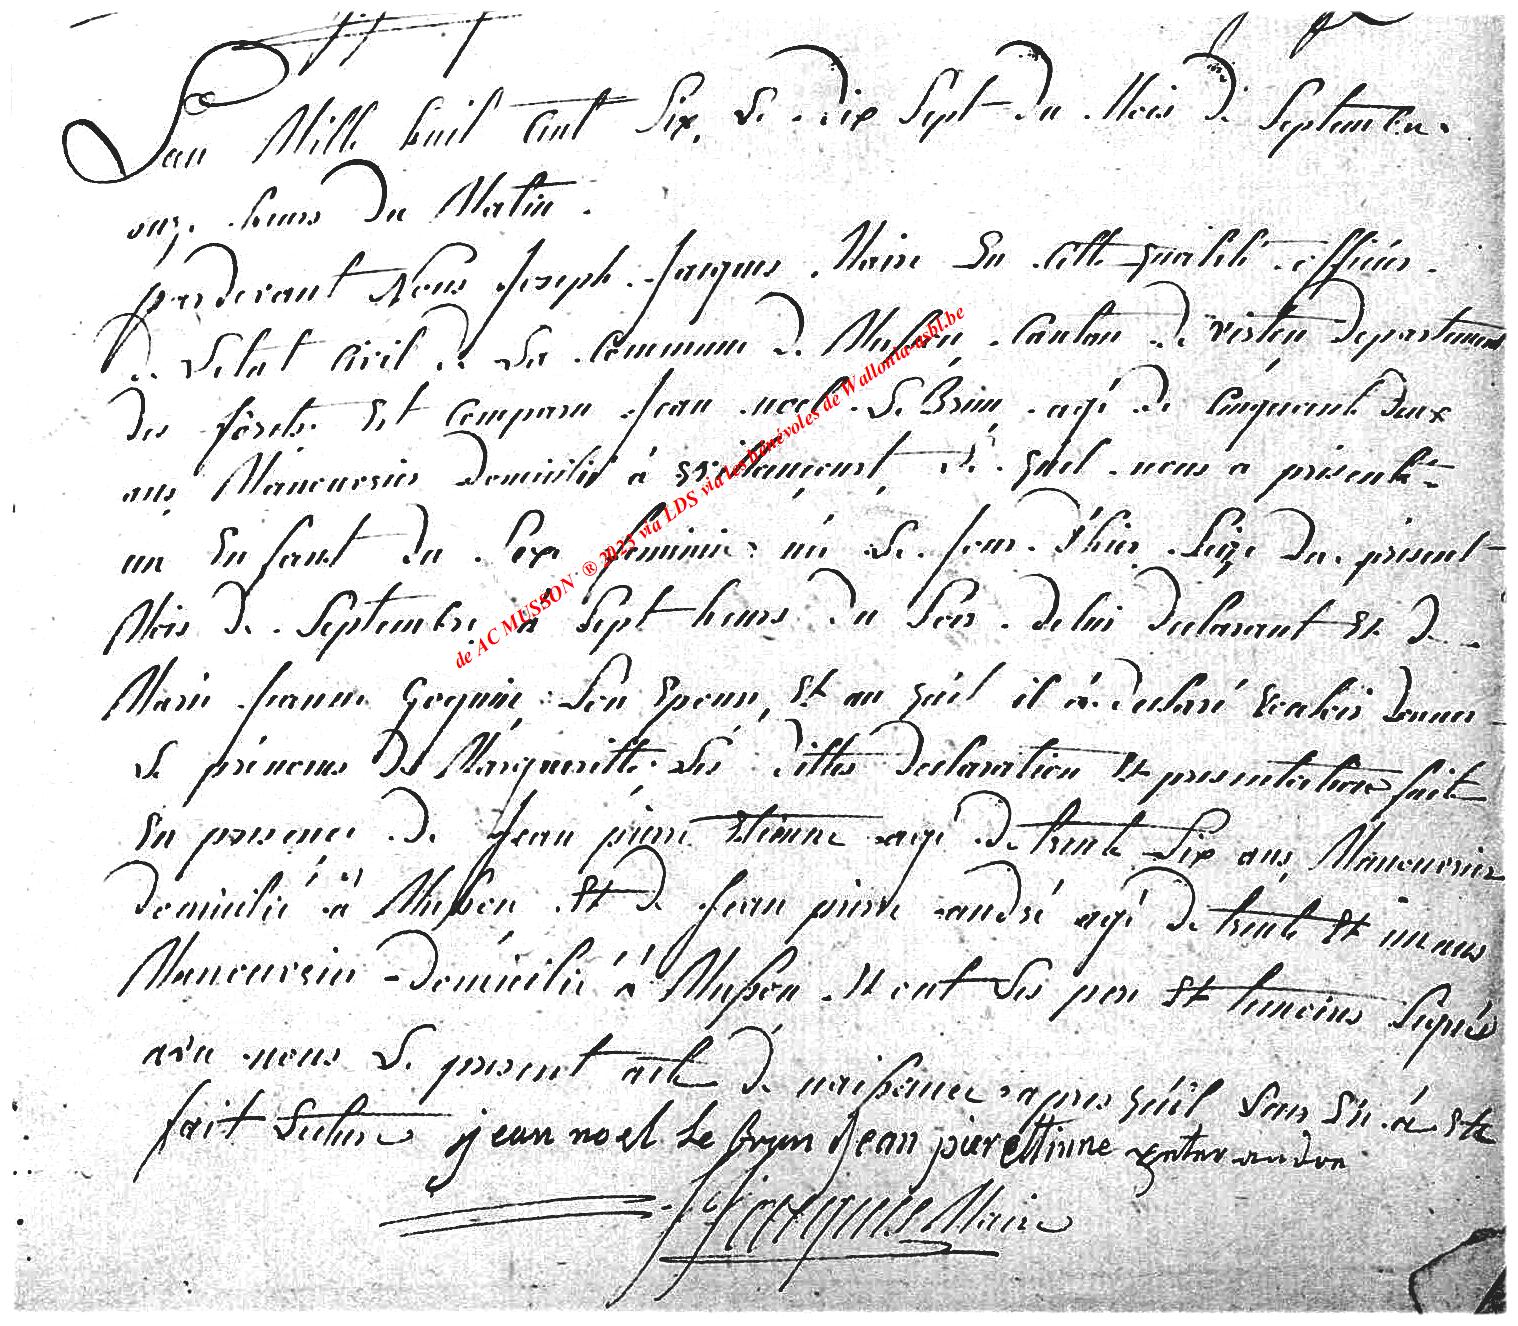 Lan Mille huit Cent Six, Le dix Sept du Mois de Septembre
onze heures du Matin.
pardevant Nous Joseph Jacques Maire En Cette qualité officier
de Letat Civil de La Commune de Musson Canton de virton departement
des forêts Est Comparu Jean noel Le Brun agé de Cinquante deux
ans Manouvrier Domicilié à qui nous a présenté
un Enfant du Sexe feminin né Le Jour d'hier Seize du présent
Mois de Septembre à Sept heures du Soir de lui declarant Et de
Marie Jeanne Goquin Son Epouse, Et au quel il à declaré vouloir donner
Le prénoms De Margueritte Les dittes declaration Et presentation fait
En presence de Jean pierre Etienne agé de trente Six ans Manouvrier
domicilié à Musson Et de Jean pierre andré agé de trente Et un ans
Manouvrier domicilié à Musson Et ont Les pere Et temoins Signés
avec nous Le present acte de naissance apres quil Leur En à Eté
fait Lecture jean noel Le Brun Jean pier ettinne andre
JJacques Maire
de AC MUSSON ® 2023 via LDS via les bénévoles de Wallonia-asbl.be